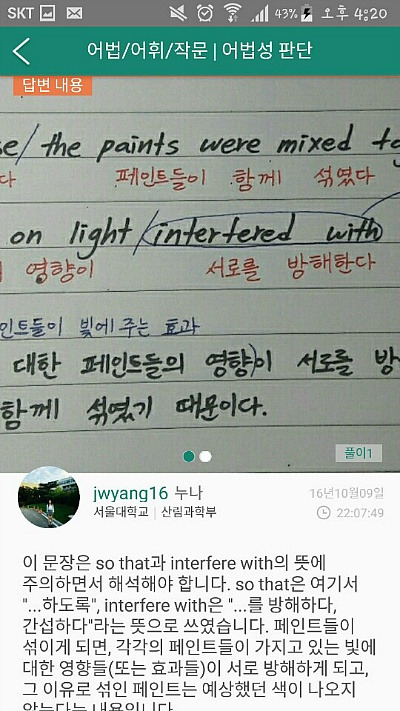 SKT 43% 오후 4:20
어법/어휘/작문 | 어법성 판단
답변 내용
se/ the paints were mixed tog
다 페인트들이 함께 섞였다
on light / interfered with
영향이 서로를 방해한다
인트들이 빛에 주는 효과
대한 페인트들의 영향)이 서로를 방
함께 섞였기 때문이다.
풀이1
jwyang16 누나 16년10월09일
서울대학교 | 산림과학부 22:07:49
이 문장은 so that과 interfere with의 뜻에
주의하면서 해석해야 합니다. so that은 여기서
"...하도록", interfere with은 "...를 방해하다,
간섭하다"라는 뜻으로 쓰였습니다. 페인트들이
섞이게 되면, 각각의 페인트들이 가지고 있는 빛에
대한 영향들(또는 효과들)이 서로 방해하게 되고,
그 이유로 섞인 페인트는 예상했던 색이 나오지
않는다는 내용입니다